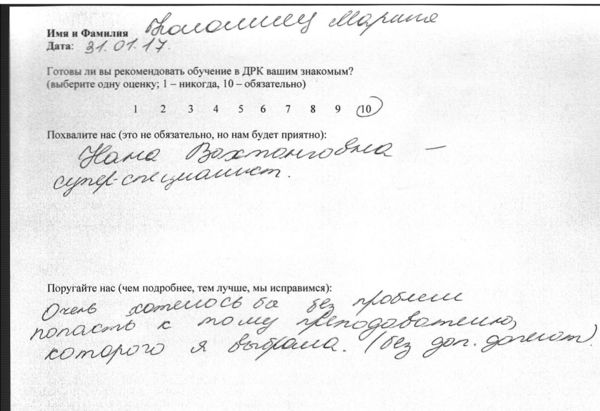 Имя и Фамилия Коломиец Марина
Дата: 31.01.17.
Готовы ли вы рекомендовать обучение в ДРК вашим знакомым?
(выберите одну оценку; 1 – никогда, 10 – обязательно)
1 2 3 4 5 6 7 8 9 10
Похвалите нас (это не обязательно, но нам будет приятно):
Нана Вахтанговна –
супер-специалист.
Поругайте нас (чем подробнее, тем лучше, мы исправимся):
Очень хотелось бы без проблем
попасть к тому преподавателю,
которого я выбрала. (без доп. доплат)